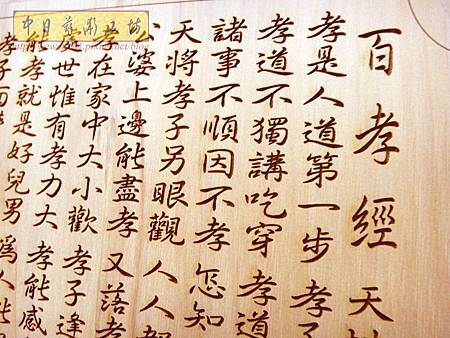 百孝經 天
孝是人道第一步 孝子
孝道不獨講吃穿 孝道
諸事不順因不孝 怎知
天將孝子另眼觀 人人
婆上邊能盡孝 又落孝
孝在家中大小歡 孝子逢
處世惟有孝力大 孝能感
能孝就是好兒男 爲人能
孝子面